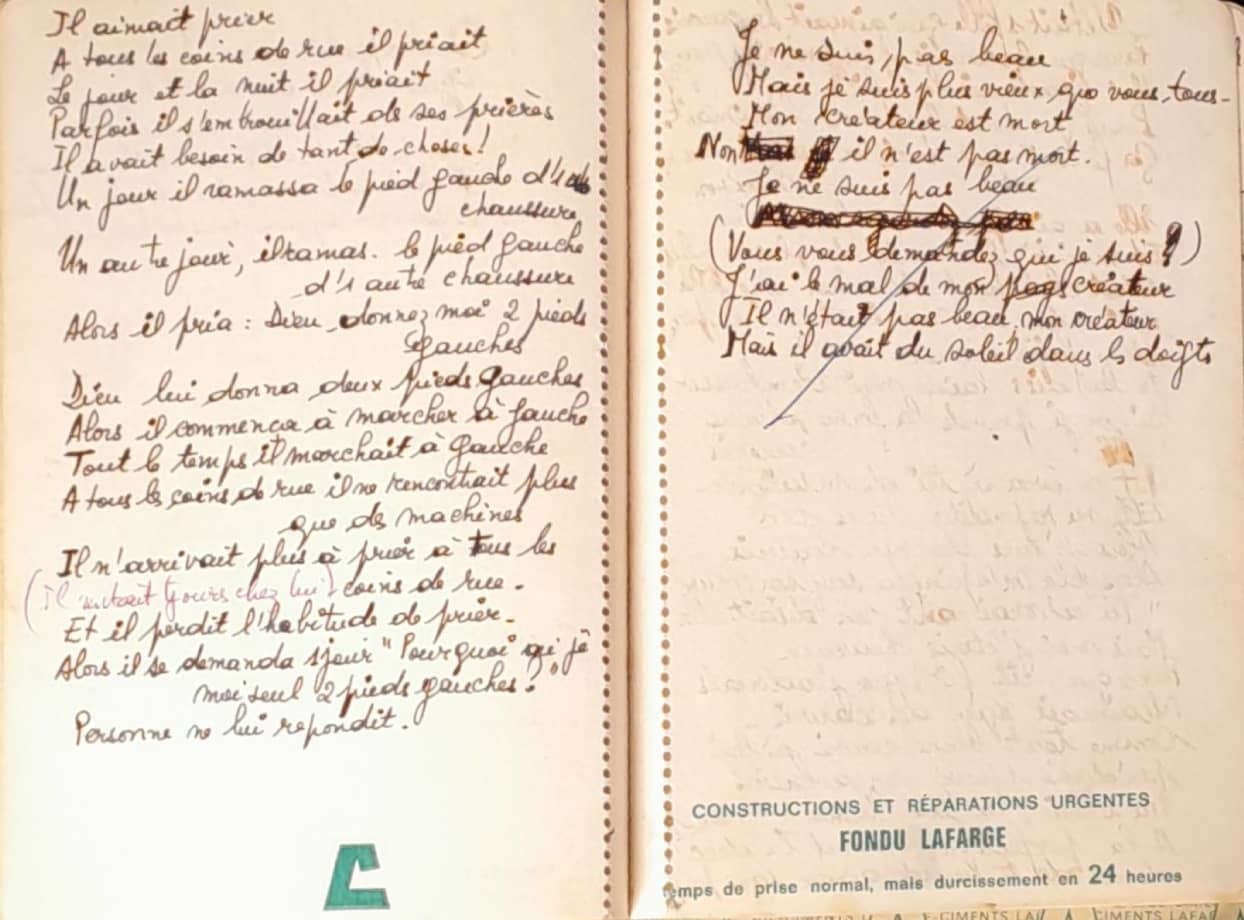 Il aimait prier
A tous les coins de rue il priait
Le jour et la nuit il priait
Parfois il s'embrouillait ds ses prières
Il avait besoin de tant de choses!
Un jour il ramassa le pied gauche d'1
chaussure
Un autre jour, il ramas. le pied gauche
d'1 autre chaussure
Alors il pria : Dieu donnez moi 2 pieds
gauches
Dieu lui donna deux pieds gauches
Alors il commença à marcher à gauche
Tout le temps il marchait à gauche
A tous les coins de rue il ne rencontrait plus
que des machines
Il n'arrivait plus à prier à tous les
coins de rue.
(Il était tjours chez lui)
Et il perdit l'habitude de prier.
Alors il se demanda 1 jour "Pourquoi ai je
moi seul 2 pieds gauches?"
Personne ne lui repondit.
Je ne suis pas beau
Mais je suis plus vieux que vous tous-
Mon créateur est mort
Non il n'est pas mort.
Je ne suis pas beau
(Vous vous demandez qui je suis?)
J'ai le mal de mon créateur
Il n'était pas beau mon créateur
Mais il avait du soleil dans ls doigts
CONSTRUCTIONS ET RÉPARATIONS URGENTES
FONDU LAFARGE
temps de prise normal, mais durcissement en 24 heures